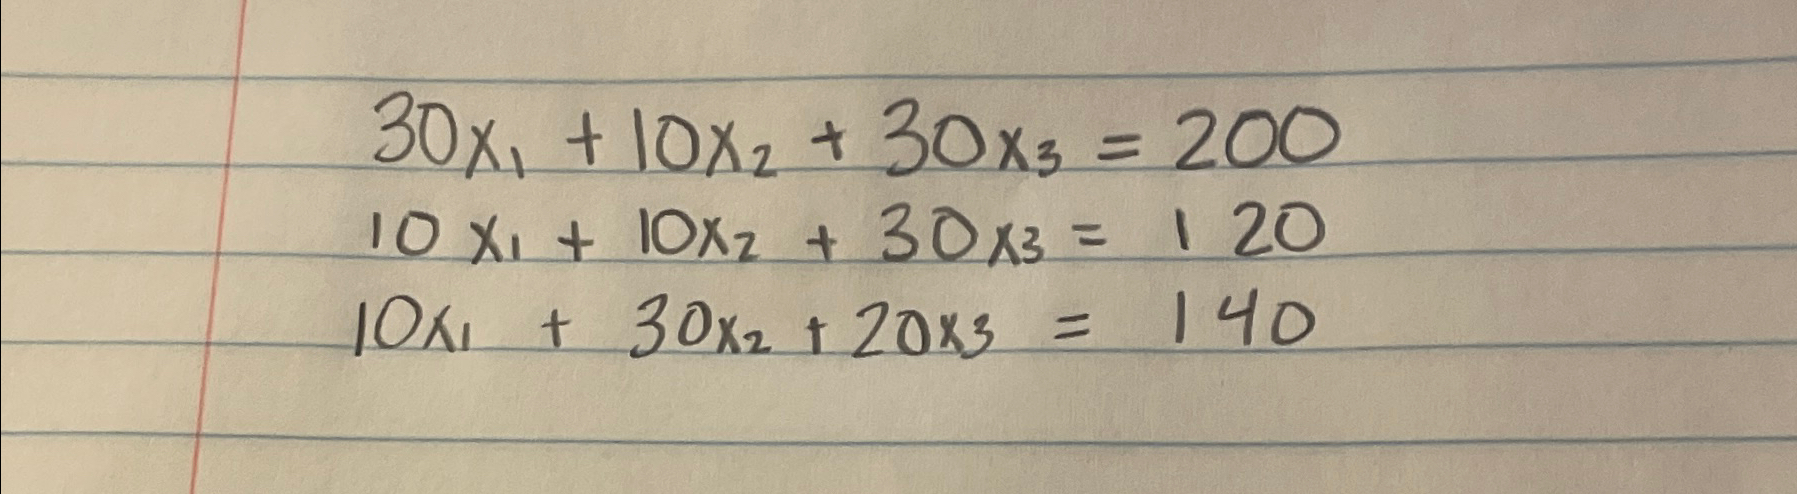 30x₁ + 10x₂ + 30x₃ = 200
10x₁ + 10x₂ + 30x₃ = 120
10x₁ + 30x₂ + 20x₃ = 140